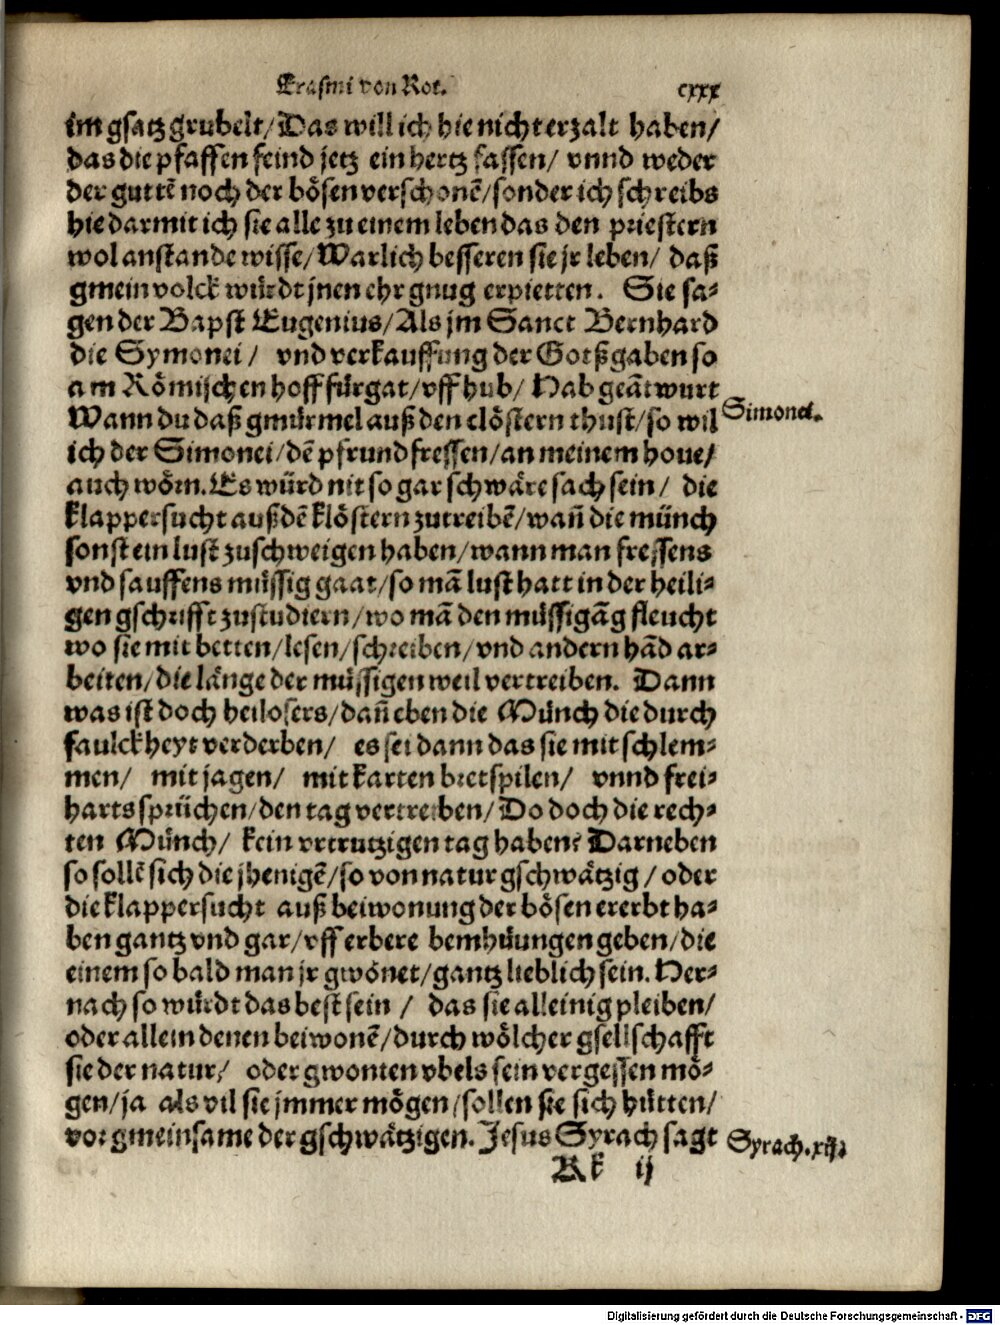 Erasmi von Rot. cxxx
im gsatz grubelt/ Das will ich hie nicht erzalt haben/
das die pfaffen feind jetz ein hertz fassen/ vnnd weder
der guttē noch der bösen verschonē/ sonder ich schreibs
hie darmit ich sie alle zu einem leben das den priestern
wol anstande wisse/ Warlich besseren sie jr leben/ daß
gmein volck würdt jnen ehr gnug erpietten. Sie sa⸗
gen der Bapst Eugenius/ Als jm Sanct Bernhard
die Symonei/ vnd verkauffung der Gotßgaben so
am Römischen hoff fürgat/ vff hub/ Hab geātwurt
Wann du daß gmürmel auß den clöstern thust/ so wil
Simonei.
ich der Simonei/ dē pfrund fressen/ an meinem houe/
auch wörn. Es würd nit so gar schwäre sach sein/ die
klappersucht auß dē klöstern zutreibē/ wañ die münch
sonst ein lust zuschweigen haben/ wann man fressens
vnd sauffens müssig gaat/ so mā lust hatt in der heili⸗
gen gschrifft zustudiern/ wo mā den müssigāg fleucht
wo sie mit betten/ lesen/ schreiben/ vnd andern hād ar⸗
beiten/ die länge der müssigen weil vertreiben. Dann
was ist doch heilosers/ dañ eben die Münch die durch
faulckheyt verderben/ es sei dann das sie mit schlem⸗
men/ mit jagen/ mit karten bretspilen/ vnnd frei⸗
harts sprüchen/ den tag vertreiben/ Do doch die rech⸗
ten Münch/ kein vrtrutzigen tag haben? Darneben
so sollē sich die jhenigē/ so von natur gschwätzig/ oder
die klappersucht auß beiwonung der bösen ererbt ha⸗
ben gantz vnd gar/ vff erbere bemhüungen geben/ die
einem so bald man jr gwönet/ gantz lieblich sein. Her⸗
nach so würdt das best sein/ das sie alleinig pleiben/
oder allein denen beiwonē/ durch wölcher gsellschafft
sie der natur/ oder gwonten vbels sein vergessen mö⸗
gen/ ja als vil sie jmmer mögen/ sollen sie sich hütten/
vor gmeinsame der gschwätzigen. Jesus Syrach sagt
Syrach.xiij.
Kk ij
Digitalisierung gefördert durch die Deutsche Forschungsgemeinschaft - DFG